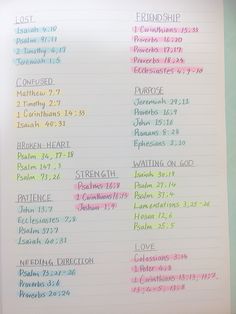 LOST
Isaiah 41;10
Psalm 91;11
2 Timothy 4;17
Jeremiah 1;5
CONFUSED
Matthew 7;7
2 Timothy 2;7
1 Corinthians 14;33
Isaiah 40;31
BROKEN HEART
Psalm 34, 17-18
Psalm 147, 3
Psalm 73,26
PATIENCE
John 13;7
Ecclesiastes 7;8
Psalm 37;7
Isaiah 40;31
NEEDING DIRECTION
Psalm 73;21-26
Proverbs 3;6
Proverbs 20;24
STRENGTH
Psalms 16;8
1 Corinthians 16;13
Joshua 1;9
FRIENDSHIP
1 Corinthians 15;33
Proverbs 16;20
Proverbs 17;17
Proverbs 18;24
Ecclesiastes 4;9-10
PURPOSE
Jeremiah 29;11
Proverbs 16;9
John 15;16
Romans 8;28
Ephesians 2;10
WAITING ON GOD
Isaiah 30;18
Psalm 27;14
Psalm 37;4
Lamentations 3,25-26
Hosea 12,6
Psalm 25;5
LOVE
Colossians 3;14
1 Peter 4;8
1 Corinthians 13;13,